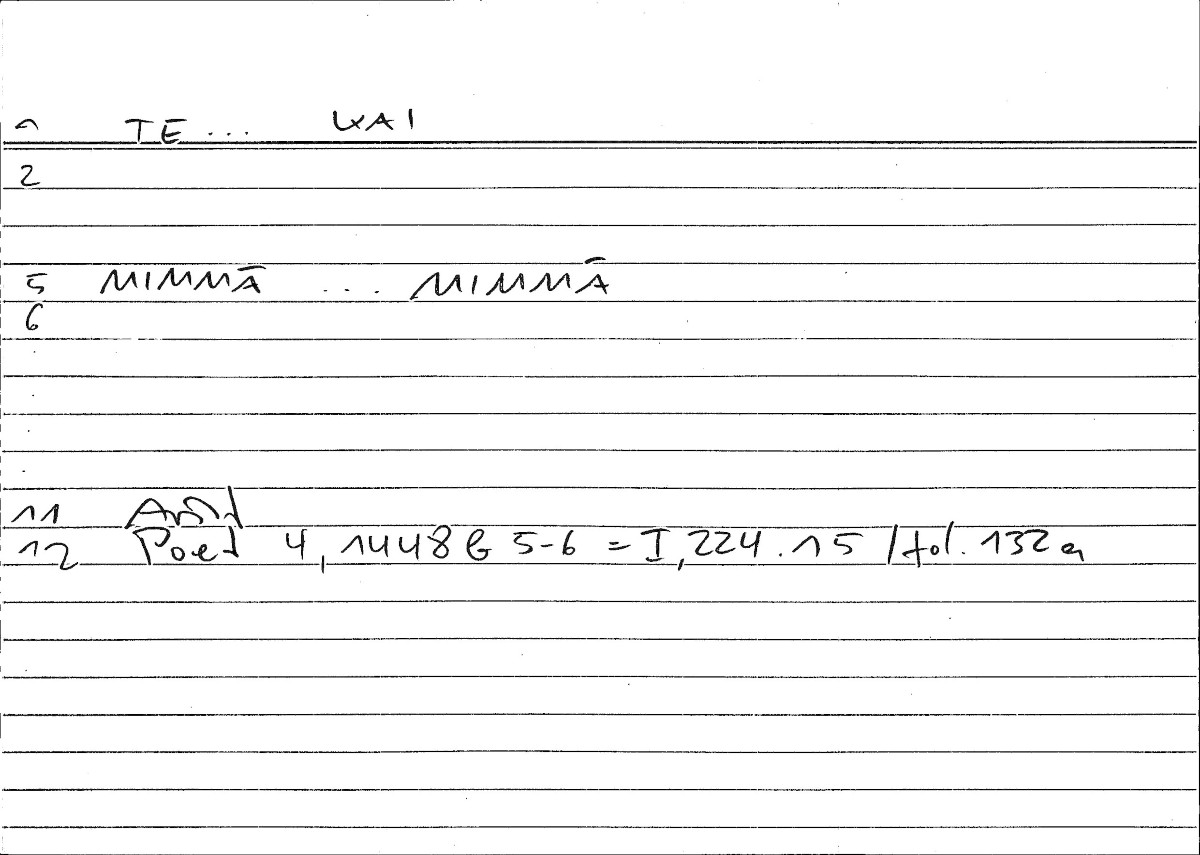 1 TE ... KAI
2
5 MIMMĀ ... MIMMĀ
6
11 Arist
12 Poet 4, 1448 b 5-6 = I, 224.15 / fol. 132a